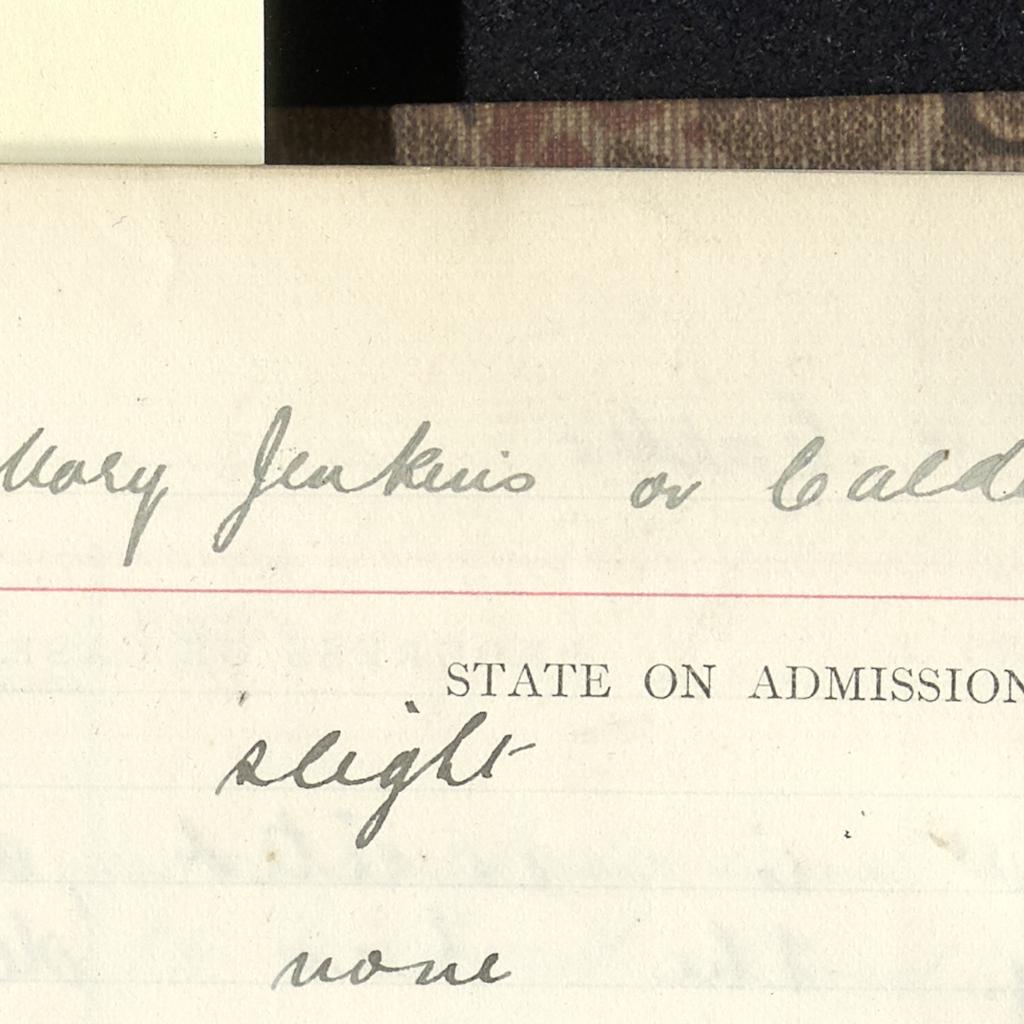 Mary Jenkins or Cald
STATE ON ADMISSION
slight
none